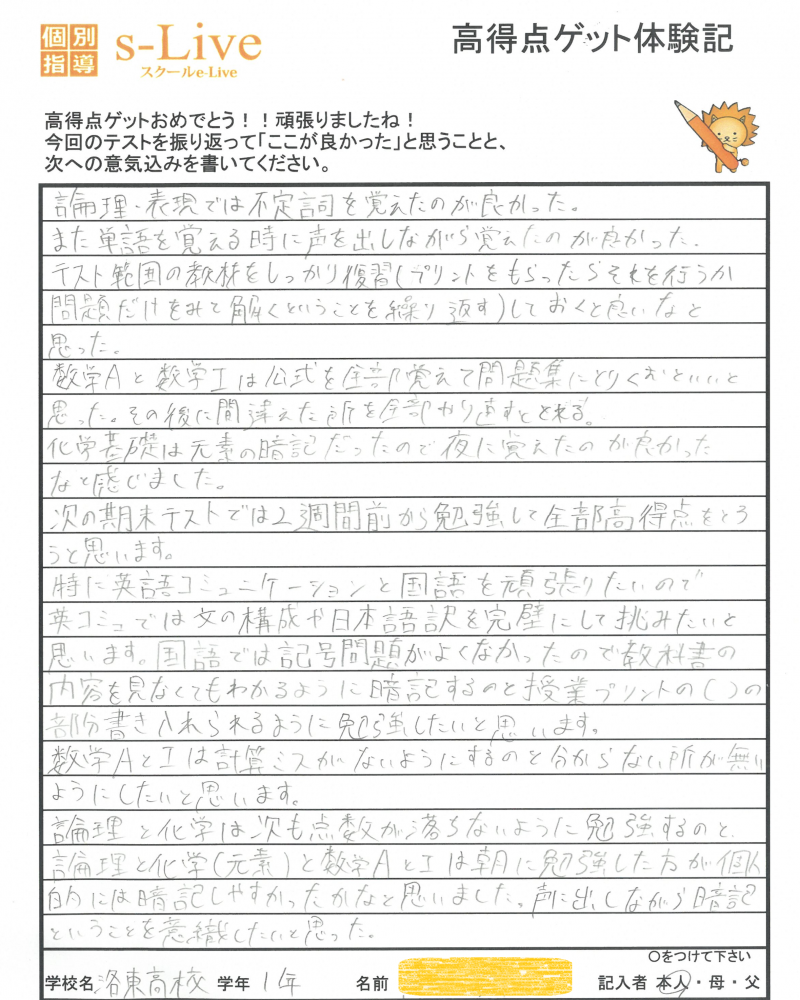 個別指導
s-Live
スクールe-Live
高得点ゲット体験記
高得点ゲットおめでとう！！頑張りましたね！
今回のテストを振り返って「ここが良かった」と思うことと、
次への意気込みを書いてください。
論理・表現では不定詞を覚えたのが良かった。
また単語を覚える時に声を出しながら覚えたのが良かった．
テスト範囲の教材をしっかり復習(プリントをもらったらそれを行うか
問題だけをみて解くということを繰り返す)しておくと良いなと
思った。
数学Aと数学Iは公式を全部覚えて問題集にとりくむといいと
思った。その後に間違えた所を全部やり直すととれる。
化学基礎は元素の暗記だったので夜に覚えたのが良かった
なと感じました。
次の期末テストでは2週間前から勉強して全部高得点をとろ
うと思います。
特に英語コミュニケーションと国語を頑張りたいので
英コミュでは文の構成や日本語訳を完璧にして挑みたいと
思います。国語では記号問題がよくなかったので教科書の
内容を見なくてもわかるように暗記するのと授業プリントの( )の
部分書き入れられるように勉強したいと思います。
数学AとIは計算ミスがないようにするのと分からない所が無い
ようにしたいと思います。
論理と化学は次も点数が落ちないように勉強するのと、
論理と化学(元素)と数学AとIは朝に勉強した方が個人
的には暗記しやすかったかなと思いました。声に出しながら暗記
ということを意識したいと思った。
〇をつけて下さい
学校名 洛東高校 学年 1年 名前 記入者 本人・母・父